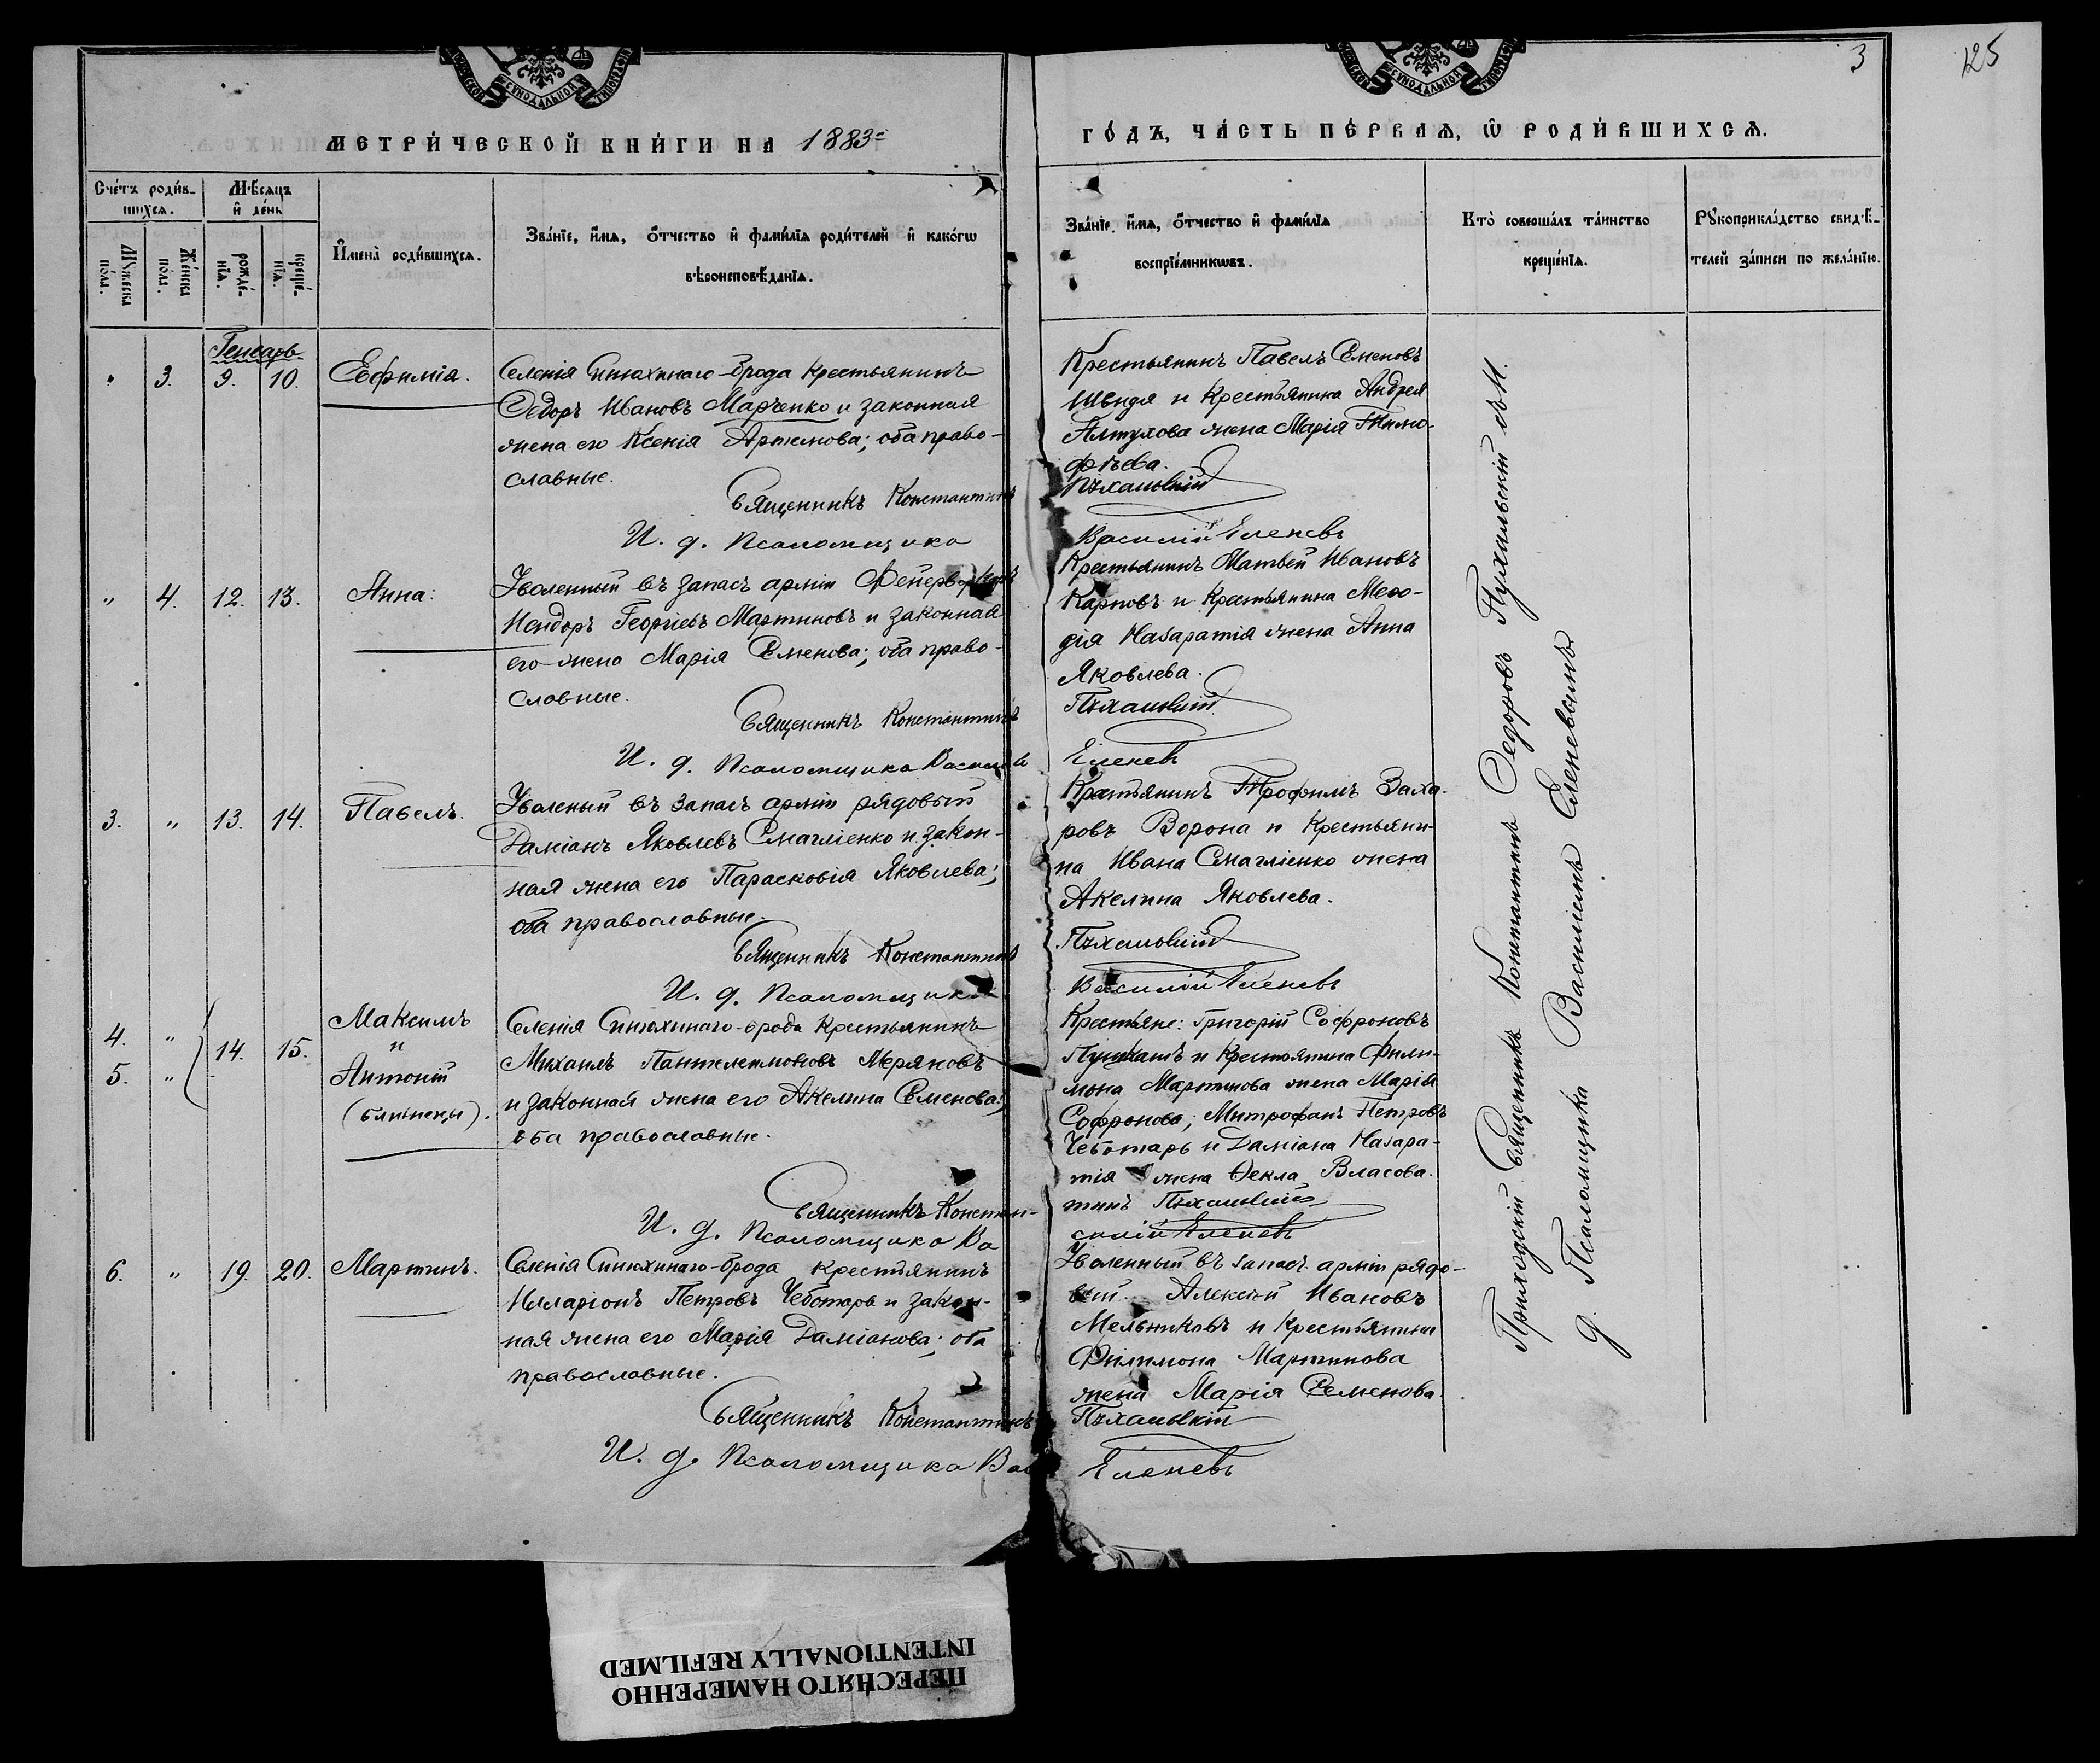 3
125
МЕТРИ́ЧЕСКОЙ КНИ́ГИ НА 1883 й
ГО́ДЪ, ЧА́СТЬ ПЕ́РВАЯ, Ѡ РОДИ́ВШИХСЯ.
Сче́тъ роди́в-
шихся.
Мѣ́сяцъ
и҆ де́нь
Мꙋ́жеска
по́ла.
Же́нска
по́ла.
рожде́-
нїя.
креще́-
нїя.
И҆мена̀ роди́вшихся.
Зва́нїе, и҆́мя, ѻ҆́тчество и҆ фами́лїя роди́телей и҆ како́гѡ
вѣроисповѣ́данїя.
Зва́нїе, и҆́мя, ѻ҆́тчество и҆ фами́лїя
воспрїе́мникѡвъ.
Кто̀ соверша́лъ та́инство
креще́нїя.
Рꙋкоприкла́дство свидѣ́-
телей за́писи по жела́нїю.
Генварь
" 3. 9. 10. Евфимія.
Селенія Синюхинаго-брода крестьянинъ
Ѳедоръ Ивановъ Марченко и законная
жена его Ксенія Артемова; оба право-
славные.
Священникъ Константинъ
И. д. Псаломщика
Крестьянинъ Павелъ Семеновъ
Швидя и Крестьянина Андрея
Алтухова жена Марія Тимо-
фѣева.
Василій Еленевъ
" 4. 12. 13. Анна:
Уволенный въ запасъ арміи Фейерверкеръ
Исидоръ Георгіевъ Мартиновъ и законная
его жена Марія Семенова; оба право-
славные.
Священникъ Константинъ
И. д. Псаломщика Василій
Крестьянинъ Матвей Ивановъ
Карповъ и Крестьянина Меѳо-
дія Назаратія жена Анна
Яковлева.
Еленевъ
3. " 13. 14. Павелъ.
Уволеный въ запасъ арміи рядовый
Даміанъ Яковлевъ Смагліенко и закон-
ная жена его Парасковія Яковлева;
оба православные.
Священникъ Константинъ
И. д. Псаломщика
Крестьянинъ Трофимъ Заха-
ровъ Ворона и Крестьяни-
на Ивана Смагліенко жена
Акелина Яковлева.
Василій Еленевъ
4. " 14. 15. Максимъ
и
5. " Антоній
(близнецы).
Селенія Синюхинаго-брода Крестьянинъ
Михаилъ Пантелеимоновъ Меряковъ
и законная жена его Акелина Семенова;
оба православные.
Священникъ Констан-
И. д. Псаломщика Ва
Крестьяне: Григорій Софроновъ
и Крестьянина Фили-
мона Мартинова жена Марія
Софронова; Митрофанъ Петровъ
Чеботарь и Даміана Назара-
тія жена Ѳекла Власова.
тинъ
силій Еленевъ
6. " 19. 20. Мартинъ.
Селенія Синюхинаго-брода крестьянинъ
Илларіонъ Петровъ Чеботарь и закон-
ная жена его Марія Даміанова; оба
православные.
Священникъ Константинъ
И. д. Псаломщика Вас
Уволенный въ запасъ арміи рядо-
вый Алексѣй Ивановъ
Мельниковъ и Крестьянина
Филимона Мартинова
жена Марія Семенова.
Еленевъ
Приходскій Священникъ Константинъ Ѳедоровъ съ И.
д. Псаломщика Василіемъ Еленевымъ
ПЕРЕСНЯТО НАМЕРЕННО
INTENTIONALLY REFILMED